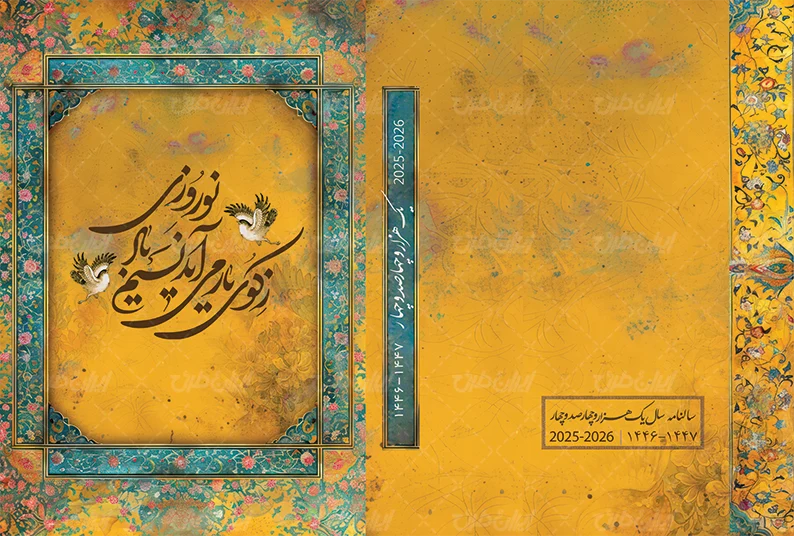 ز کوی یار می آید نسیم باد
نوروزی
2025-2026
یک هزار و چهارصد و چهار
۱۴۴۶-۱۴۴۷
سالنامه سال یک هزار و چهارصد و چهار
2025-2026 | ۱۴۴۶-۱۴۴۷
ایران طرح